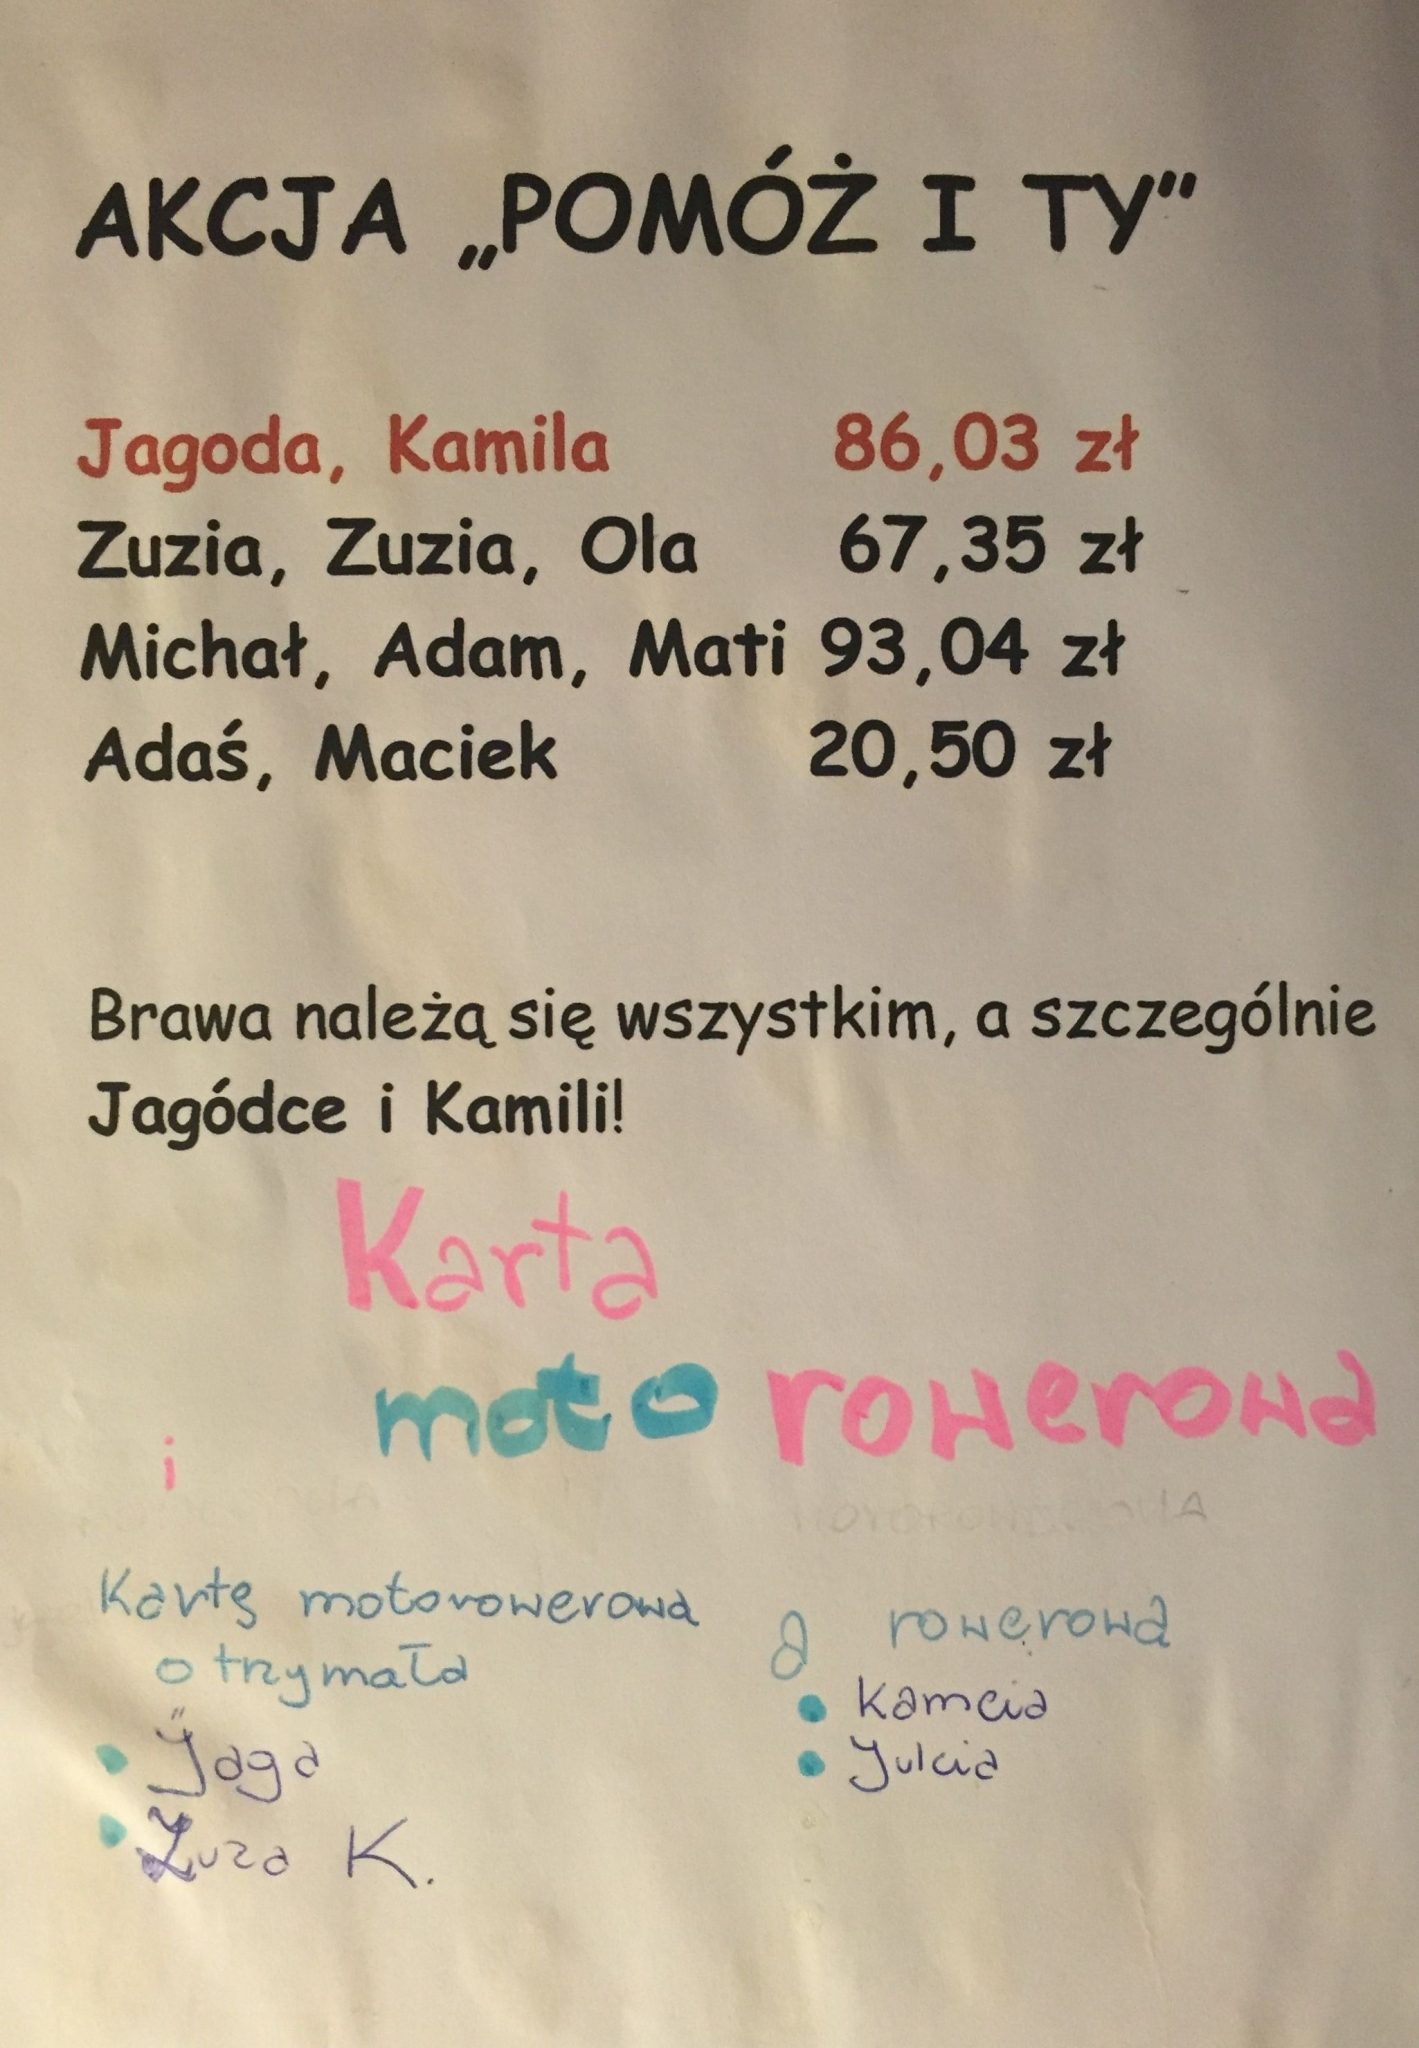 AKCJA „POMÓŻ I TY”
Jagoda, Kamila 86,03 zł
Zuzia, Zuzia, Ola 67,35 zł
Michał, Adam, Mati 93,04 zł
Adaś, Maciek 20,50 zł
Brawa należą się wszystkim, a szczególnie
Jagódce i Kamili!
Karta
moto rowerowa
i
Kartę motorowerowa
otrzymała
Jaga
Zuza K.
a rowerowa
Kamcia
Julcia